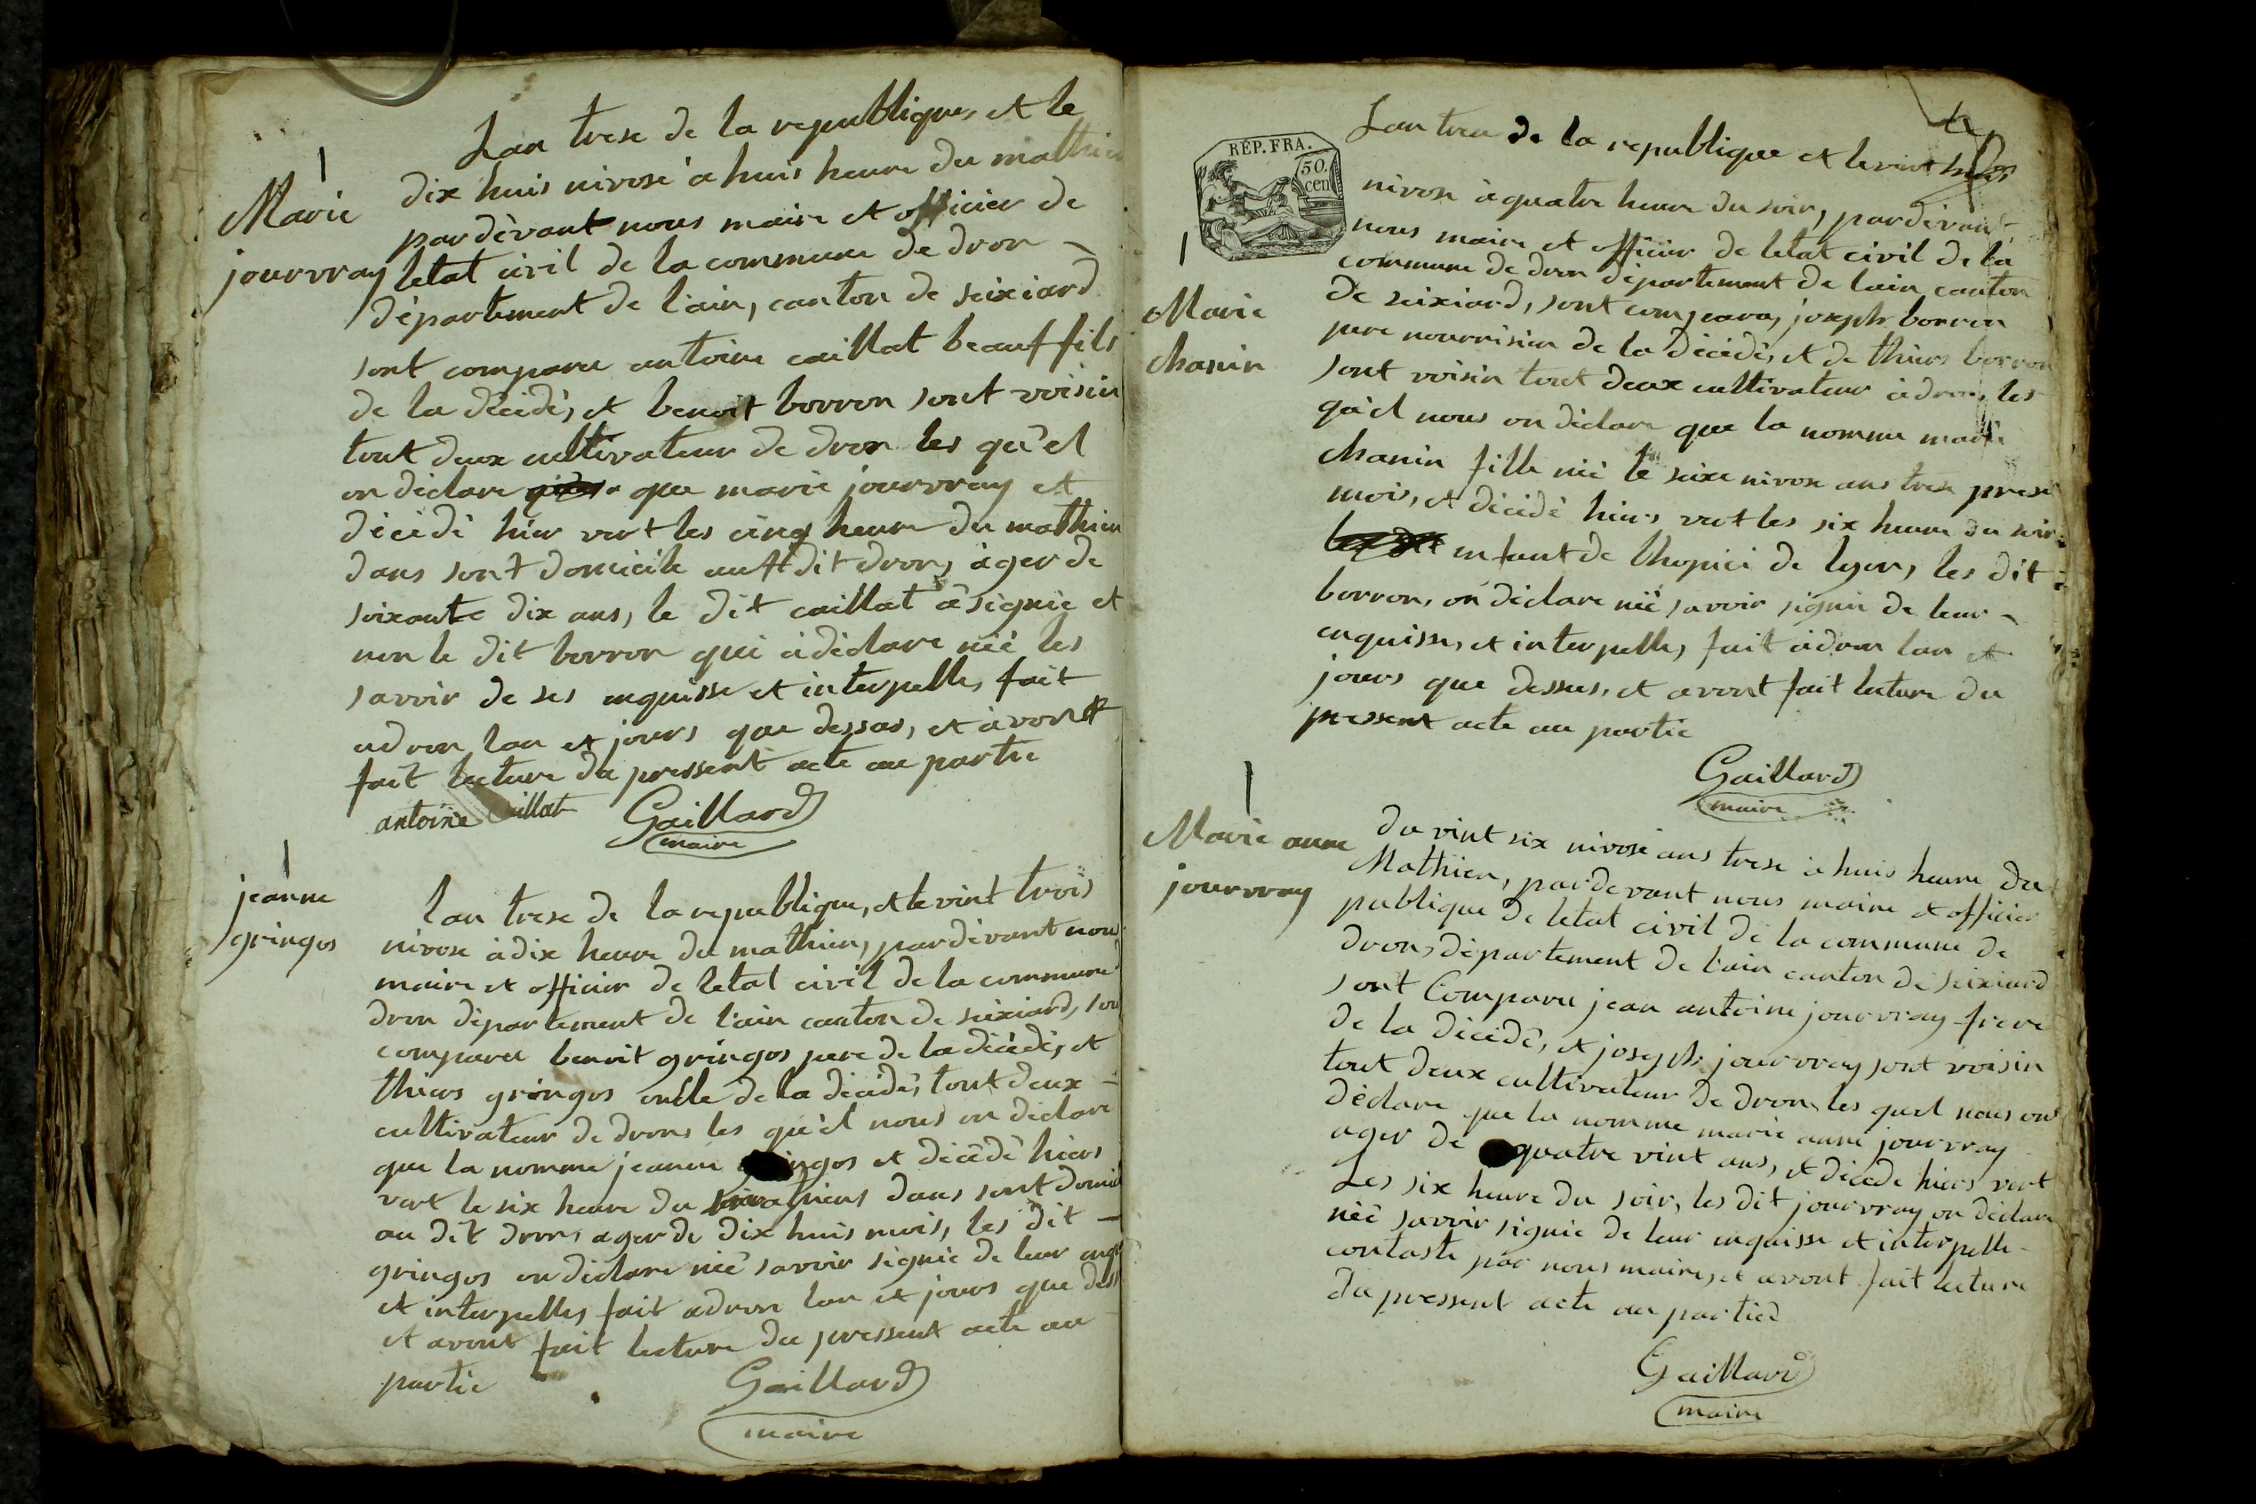 Lan trese de la republique, et le
Marie
jourvray
dix huis nivosé à huis heure du mathien
pardèvant nous maire et officier de
letat civil de la commune de dron
département de l'ain, canton de seixiard
sont comparu antoine caillat beauffils
de la décédé, et benoit borron sont voisin
tout deux cultivateur de dron les qu'el
on déclare que marie jourvray et
décédé hier vert les cinq heure du mathien
dans sont domicile auttdit dron, àger de
soixante dix ans, le dit caillat à signie et
non le dit borron qui à déclare nié les
savoir de ses enquisse et interpelle, fait
adron lan et jours que dessus, et àvont
fait lecture du pressent acte au partie
antoine Caillat Gaillard
maire
jeanne
gringos
lan trese de la republique, et le vint trois
nivose à dix heure du mathien, pardevant nou
maire et officier de letat civil de la commune
dron département de l'ain canton de seixiard, son
comparu benoit gringos pere de la décédé, et
thiers gringos oncle de la décédé, tout deux
cultivateur de dron, les qu'el nous on déclare
que la nomme jeanne gringos et décédé hiers
vert le six heure du mathiens dans sont domicil
au dit dron, ager de dix huis mois, les dit
gringos on déclare nié savoir signie de leur enqu
et interpelle, fait adron lan et jours que dess
et avont fait lecture du pressent acte au
partie
Gaillard
maire
RÉP. FRA.
50.
cen
Lan trese de la republique et le vint
nivose à quatre heure du soir, pardèvant
nous maire et officier de letat civil de la
commune de dron département de lain canton
Marie
chanin
de seixiard, sont comparu, joseph borron
pere nourrisier de la décédé, et de thiers borron
sont voisin tout deux cultivateur à dron, les
qu'el nous on déclare que la nomme marie
chanin fille nié le seixe nivose ans trese presen
mois, et décédé hiers vert les six heure du soir
enfant de lhopici de lyon, les dit
borron, on déclare nié savoir signie de leur
enquisse, et interpelle, fait àdron lan et
jours que dessus, et avont fait lecture du
pressent acte au partie
Gaillard
maire
Marie anne
jourvray
du vint six nivosé ans trese à huis heure du
Mathien, pardevant nous maire et officier
publique de letat civil de la commune de
dron, département de l'ain canton de seixiard
sont Comparu jean antoine jourvray frere
de la décédé, et joseph jourvray sont voisin
tout deux cultivateur de dron, les quel nous on
déclare que la nomme marie anne jourvray
ager de quatre vint ans, et décédé hiers vert
Les six heure du soir, les dit jourvray on déclare
nié savoir signie de leur enquisse et interpelle
contaste par nous maire, et avont fait lecture
du pressent acte au partied
Gaillard
maire